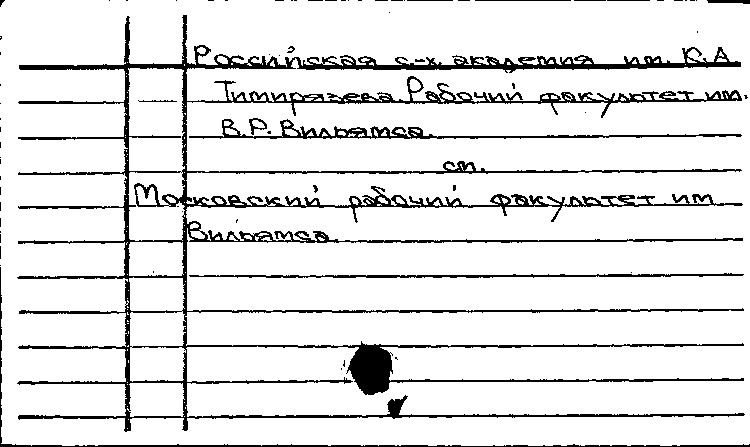 Российская с-х. академия им. К.А.
Тимирязева. Рабочий факультет им.
В.Р. Вильямса.
см.
Московский рабочий факультет им
Вильямса.